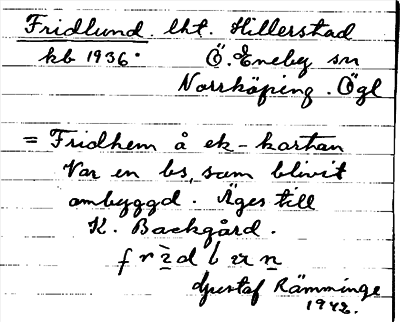 Fridlund. lht. Hillerstad
kb 1936. Ö. Eneby sn
Norrköping. Ögl
= Fridhem å ek-kartan
Var en bs, som blivit
ombyggd. Äges till
K. Backgård.
Gustaf Rämminge
1942.